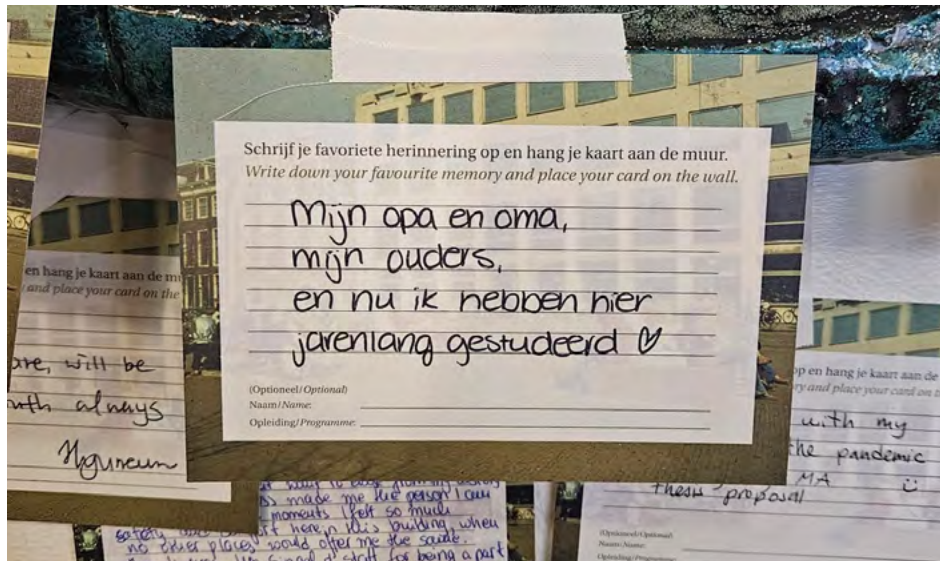 Schrijf je favoriete herinnering op en hang je kaart aan de muur.
Write down your favourite memory and place your card on the wall.
Mijn opa en oma,
mijn ouders,
en nu ik hebben hier
jarenlang gestudeerd ♡
(Optioneel/Optional)
Naam/Name:
Opleiding/Programme:
en hang je kaart aan de
and place your card on the
are, will be
always
op en hang je kaart aan de
and place your card on
with my
the pandemic
MA
thesis proposal
(Optioneel/Optional)
Naam/Name:
Opleiding/Programme:
made me the person I am
moments I felt so much
safety here in this building, when
no other places would offer me the same.
for being a part